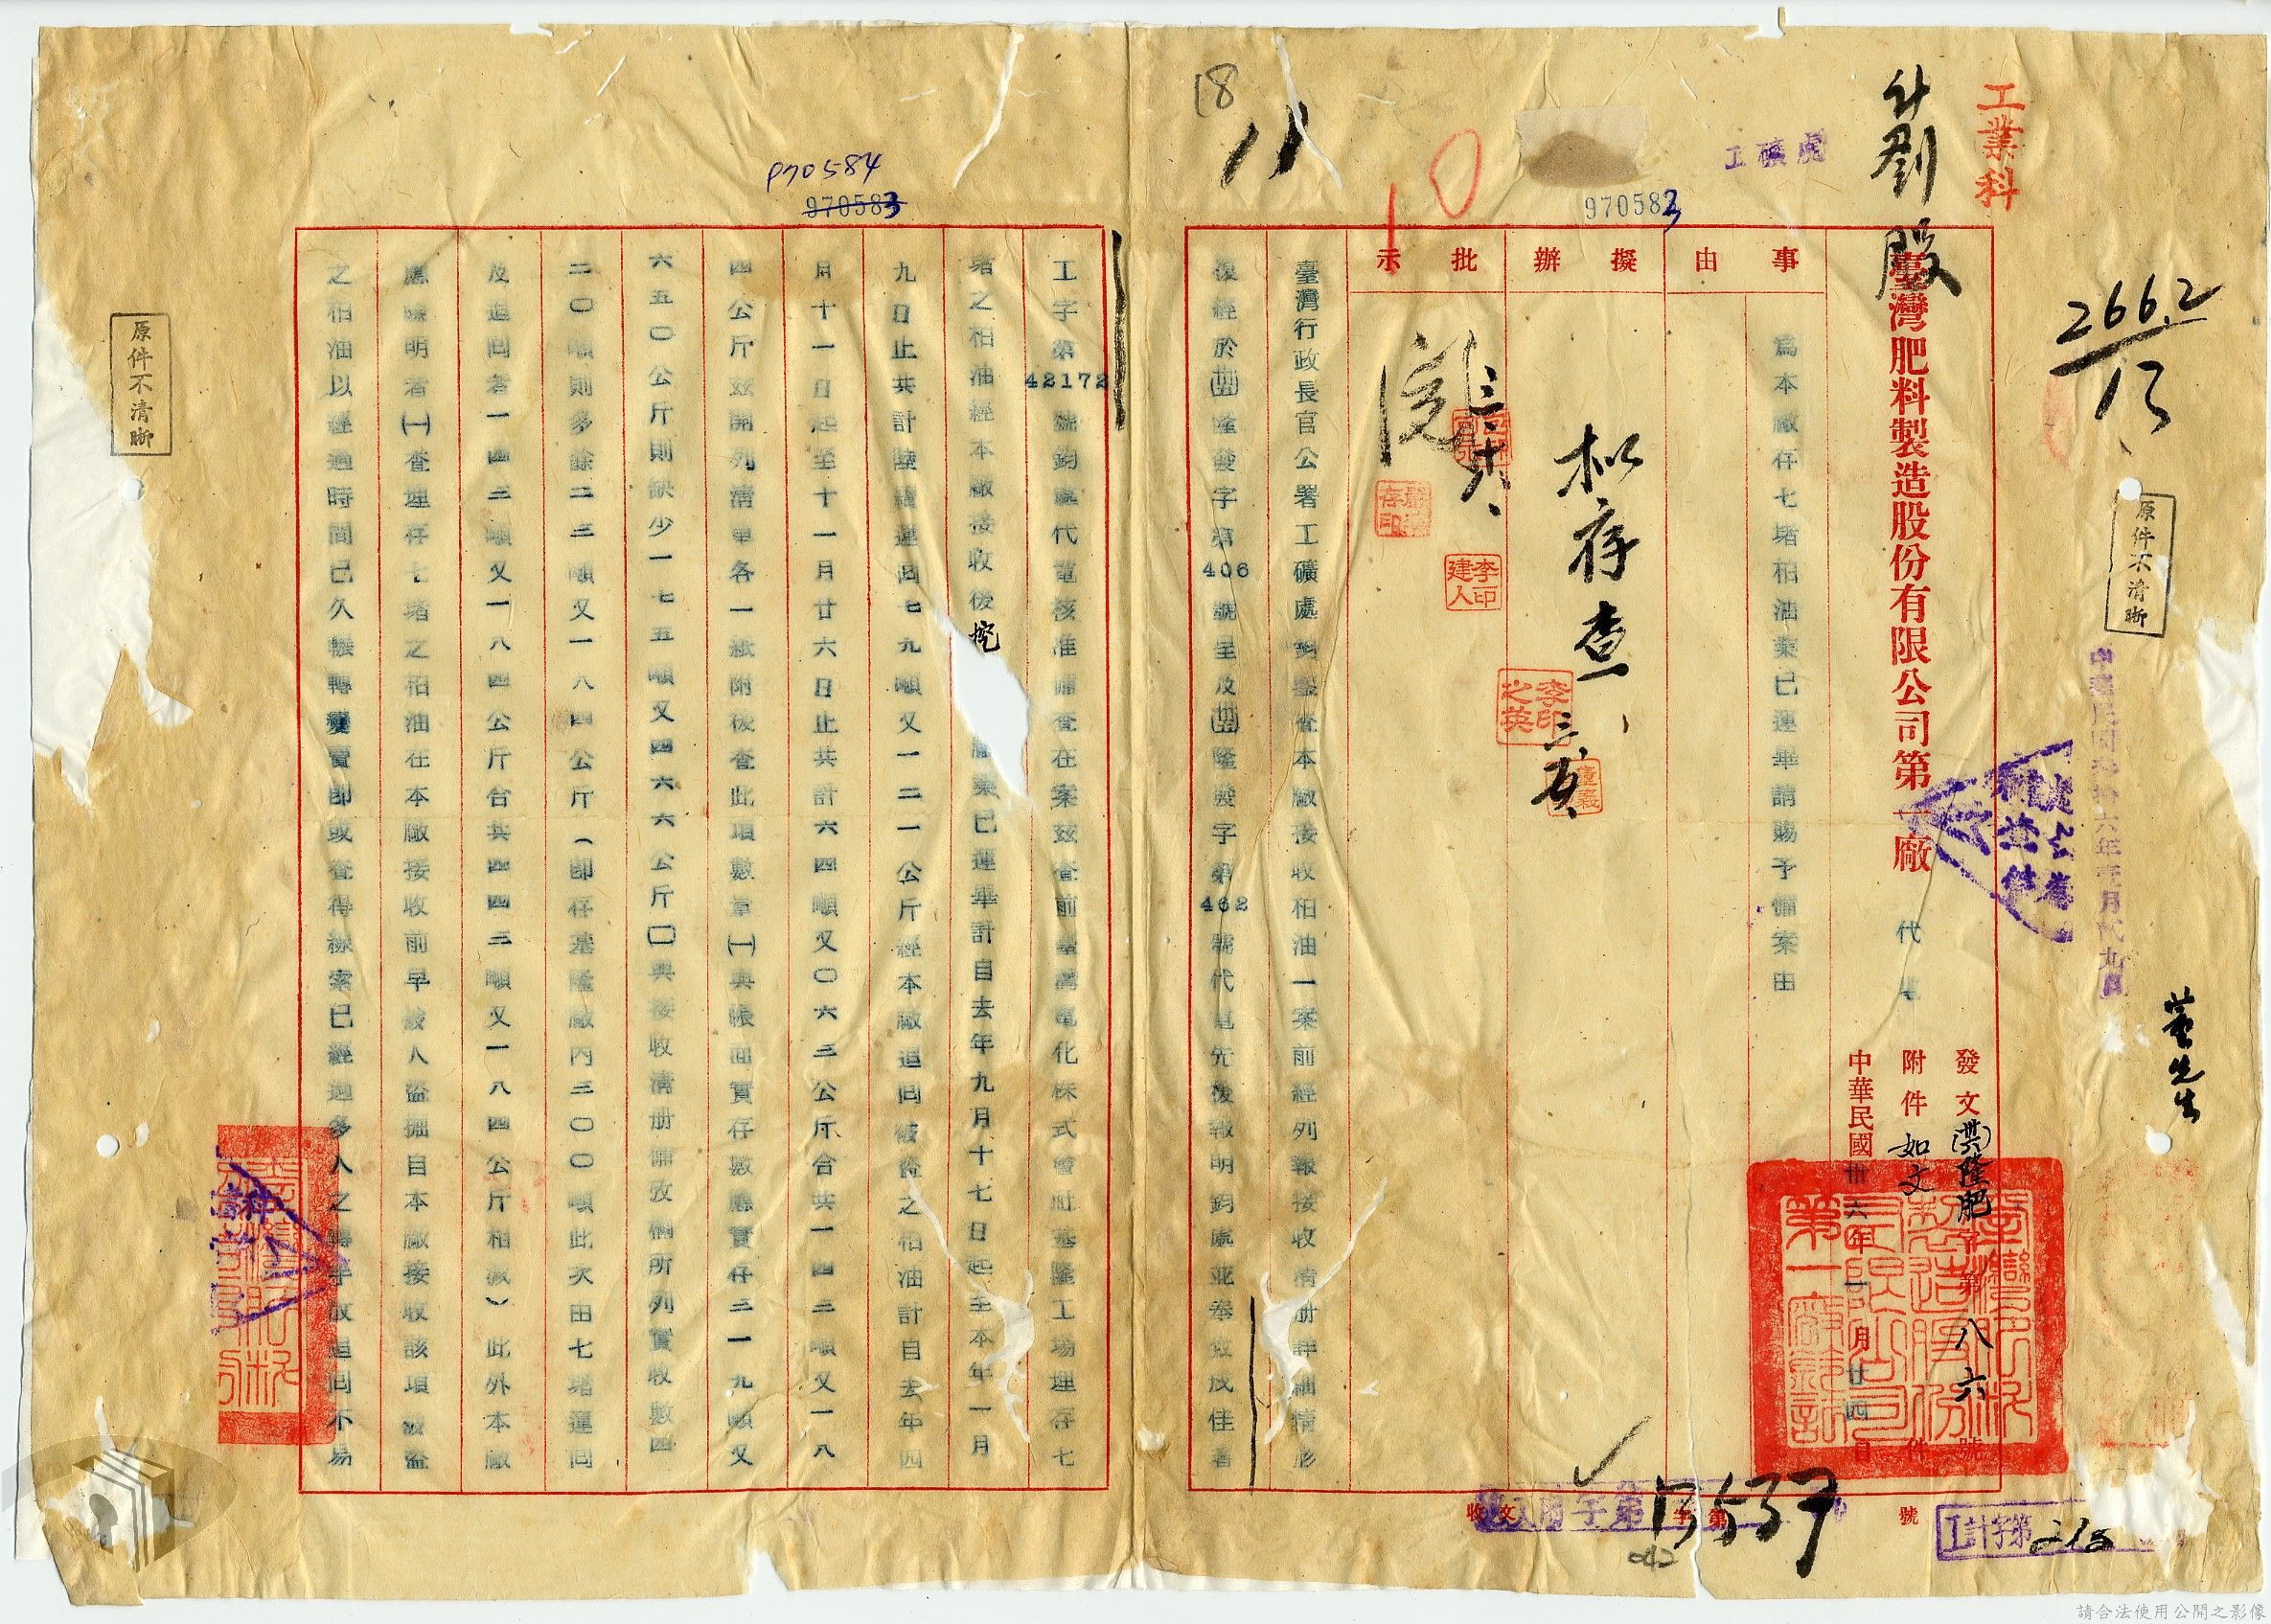 工業科
計劉股
工礦處
18
10
970583
266.2
13
原件不清晰
臺灣肥料製造股份有限公司第一廠 代電
中華民國卅六年 月廿四日
附件 如文 件
發文 隆肥字第八六號
董先生
事由
為本廠存七堵柏油業已運畢請賜予備案由
擬辦
擬存查
李印之英
批示
李印建人
臺灣行政長官公署工礦處鈞鑒查本廠接收柏油一案前經列報接收清册詳細情形
復經於 隆發字第406號呈及 隆發字第462號代電先後報明鈞處並奉 戌佳署
工字第42172號鈞處代電核准備查在案茲查前臺灣電化株式會社基隆工場埋存七
堵之柏油經本廠接收後挖 業已運畢計自去年九月十七日起至本年一月
九日止共計陸續運回七九噸又一二一公斤經本廠追回被盜之柏油計自去年四
月十一日起至十一月廿六日止共計六四噸又〇六三公斤合共一四三噸又一八
四公斤茲開列清單各一紙附後查此項數量㈠與帳面實存數應實存三一九噸又
六五〇公斤則缺少一七五噸又四六六公斤㈡與接收清册備攷欄所列實收數四
二〇噸則多餘二三噸又一八四公斤(即存基隆廠內三〇〇噸此次由七堵運回
及追回者一四三噸又一八四公斤合共四四三噸又一八四公斤相減)此外本廠
應陳明者㈠查埋存七堵之柏油在本廠接收前早被人盜掘自本廠接收該項被盜
之柏油以經過時間已久輾轉變賣即或查得線索已經過多人之轉手故追回不易
P70584
970583
原件不清晰
收文 字第13537號
工計字第213
042
請合法使用公開之影像